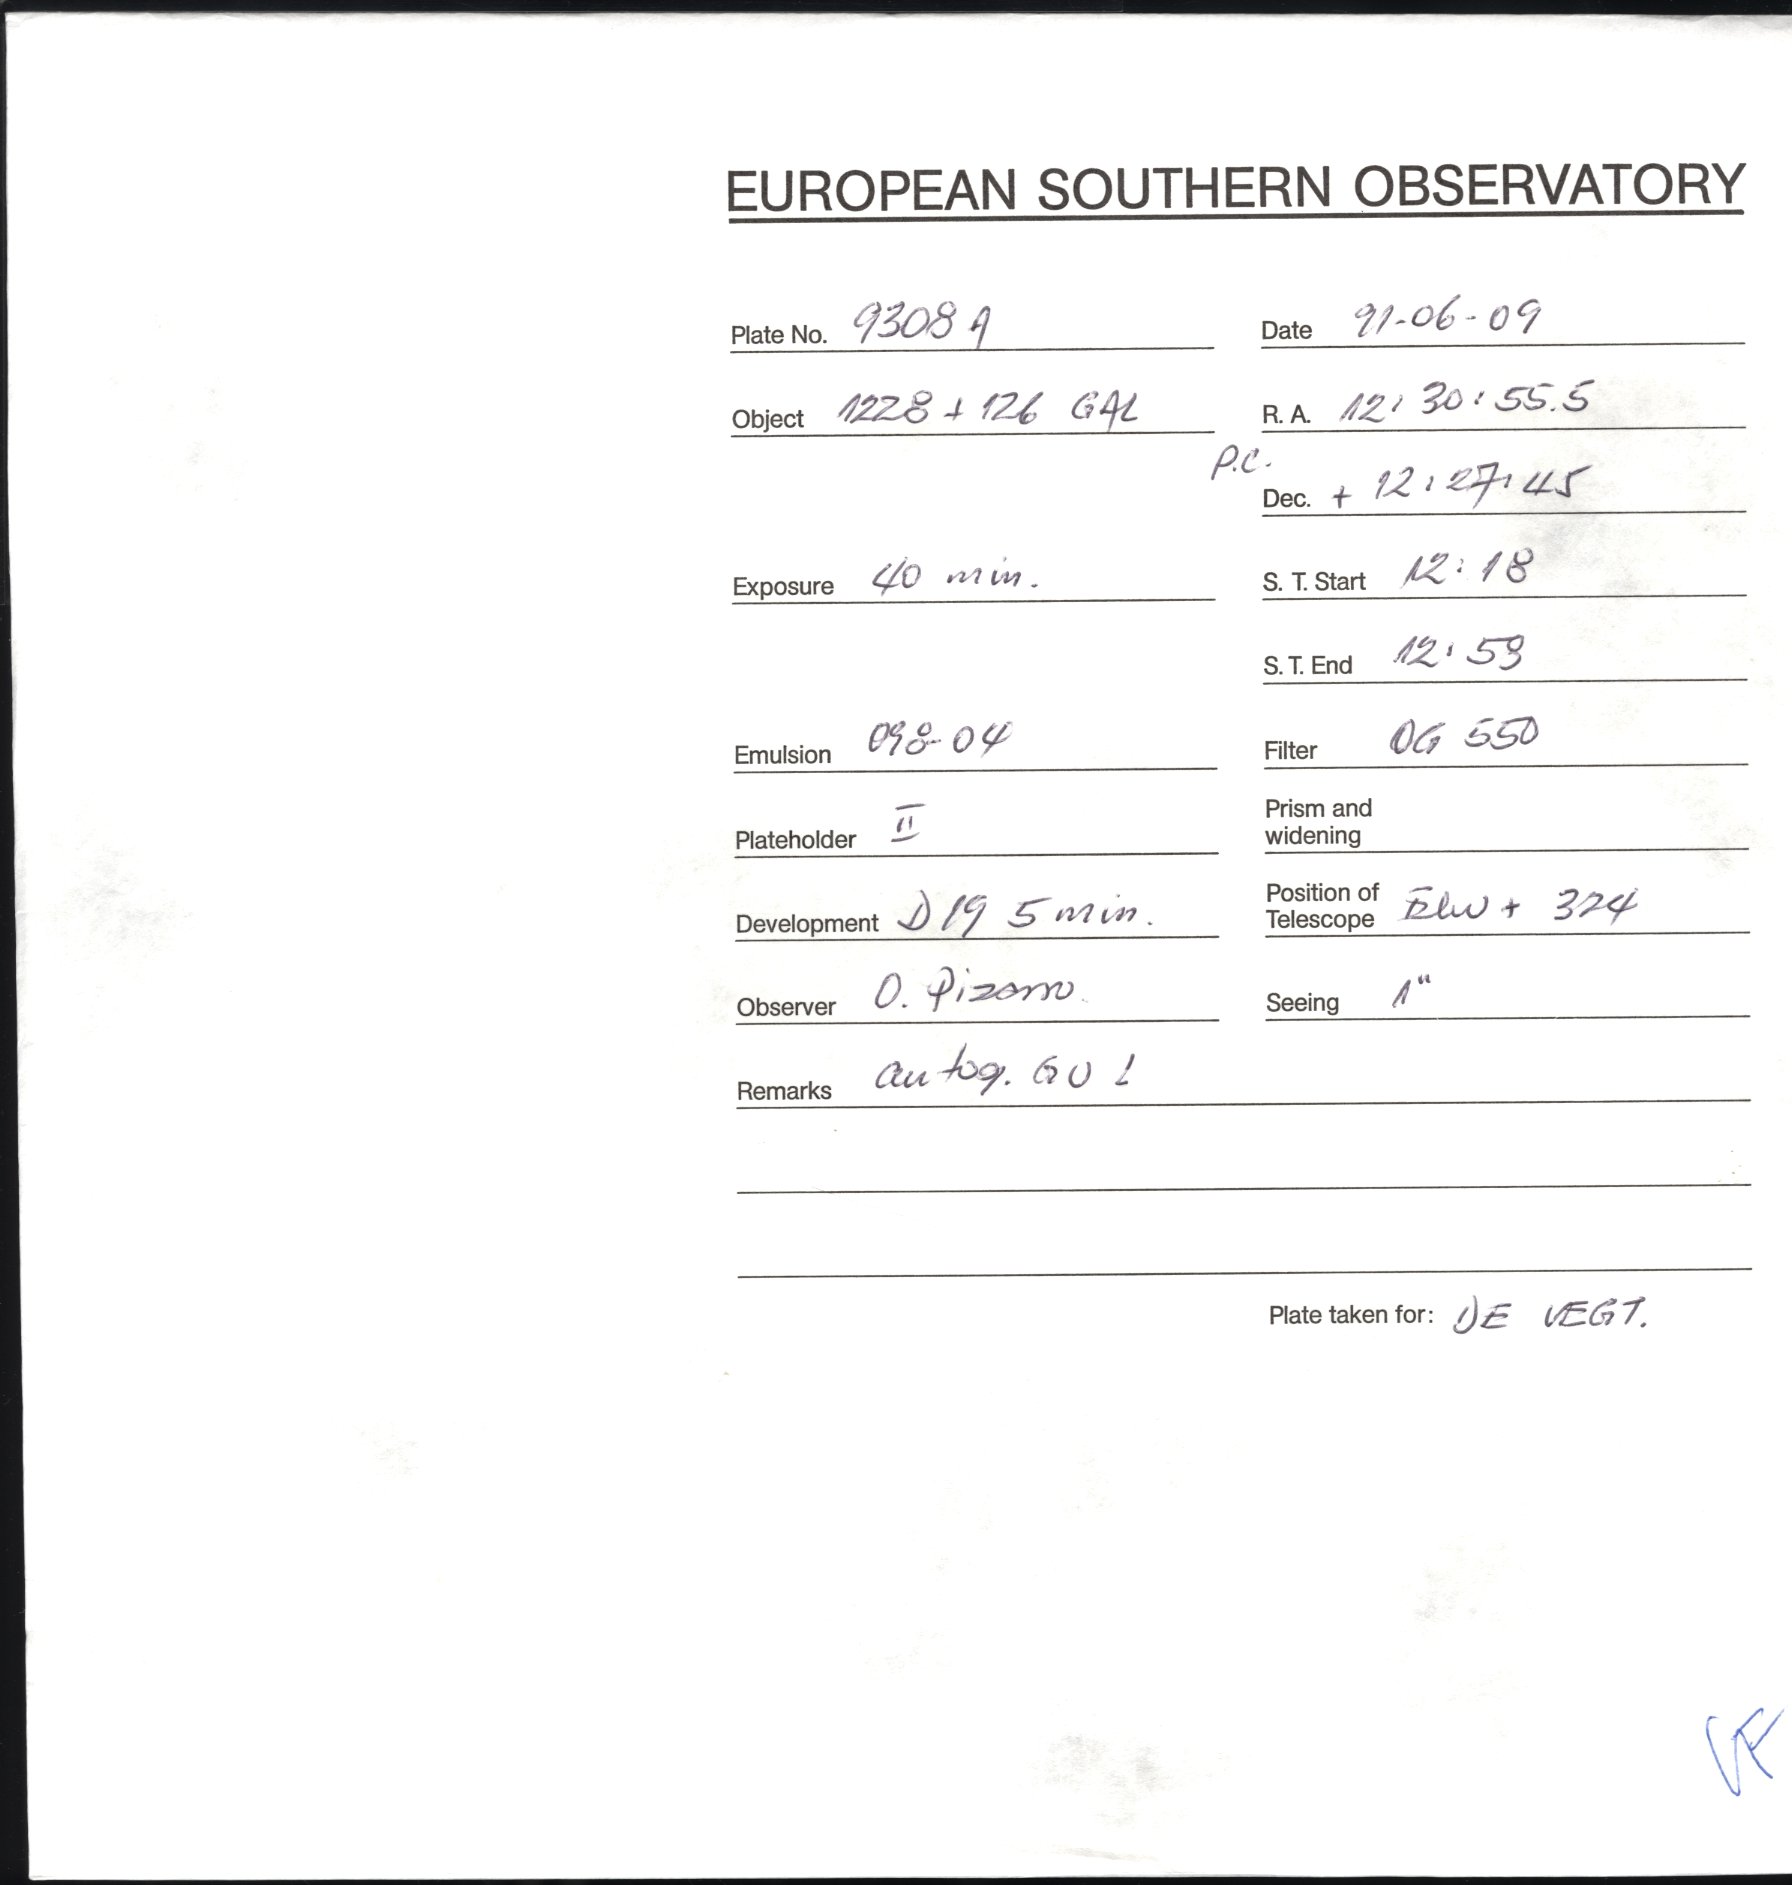 EUROPEAN SOUTHERN OBSERVATORY
Plate No. 9308 A
Date 91-06-09
Object 1228 + 126 GAL
R. A. 12: 30: 55.5
P.C.
Dec. + 12: 27: 45
Exposure 40 min.
S. T. Start 12: 18
S. T. End 12: 59
Emulsion 098-04
Filter OG 550
Plateholder II
Prism and
widening
Development D19 5 min.
Position of
Telescope + 324
Observer O. Pizarro
Seeing 1"
Remarks autog. GU 1
Plate taken for: DE VEGT.